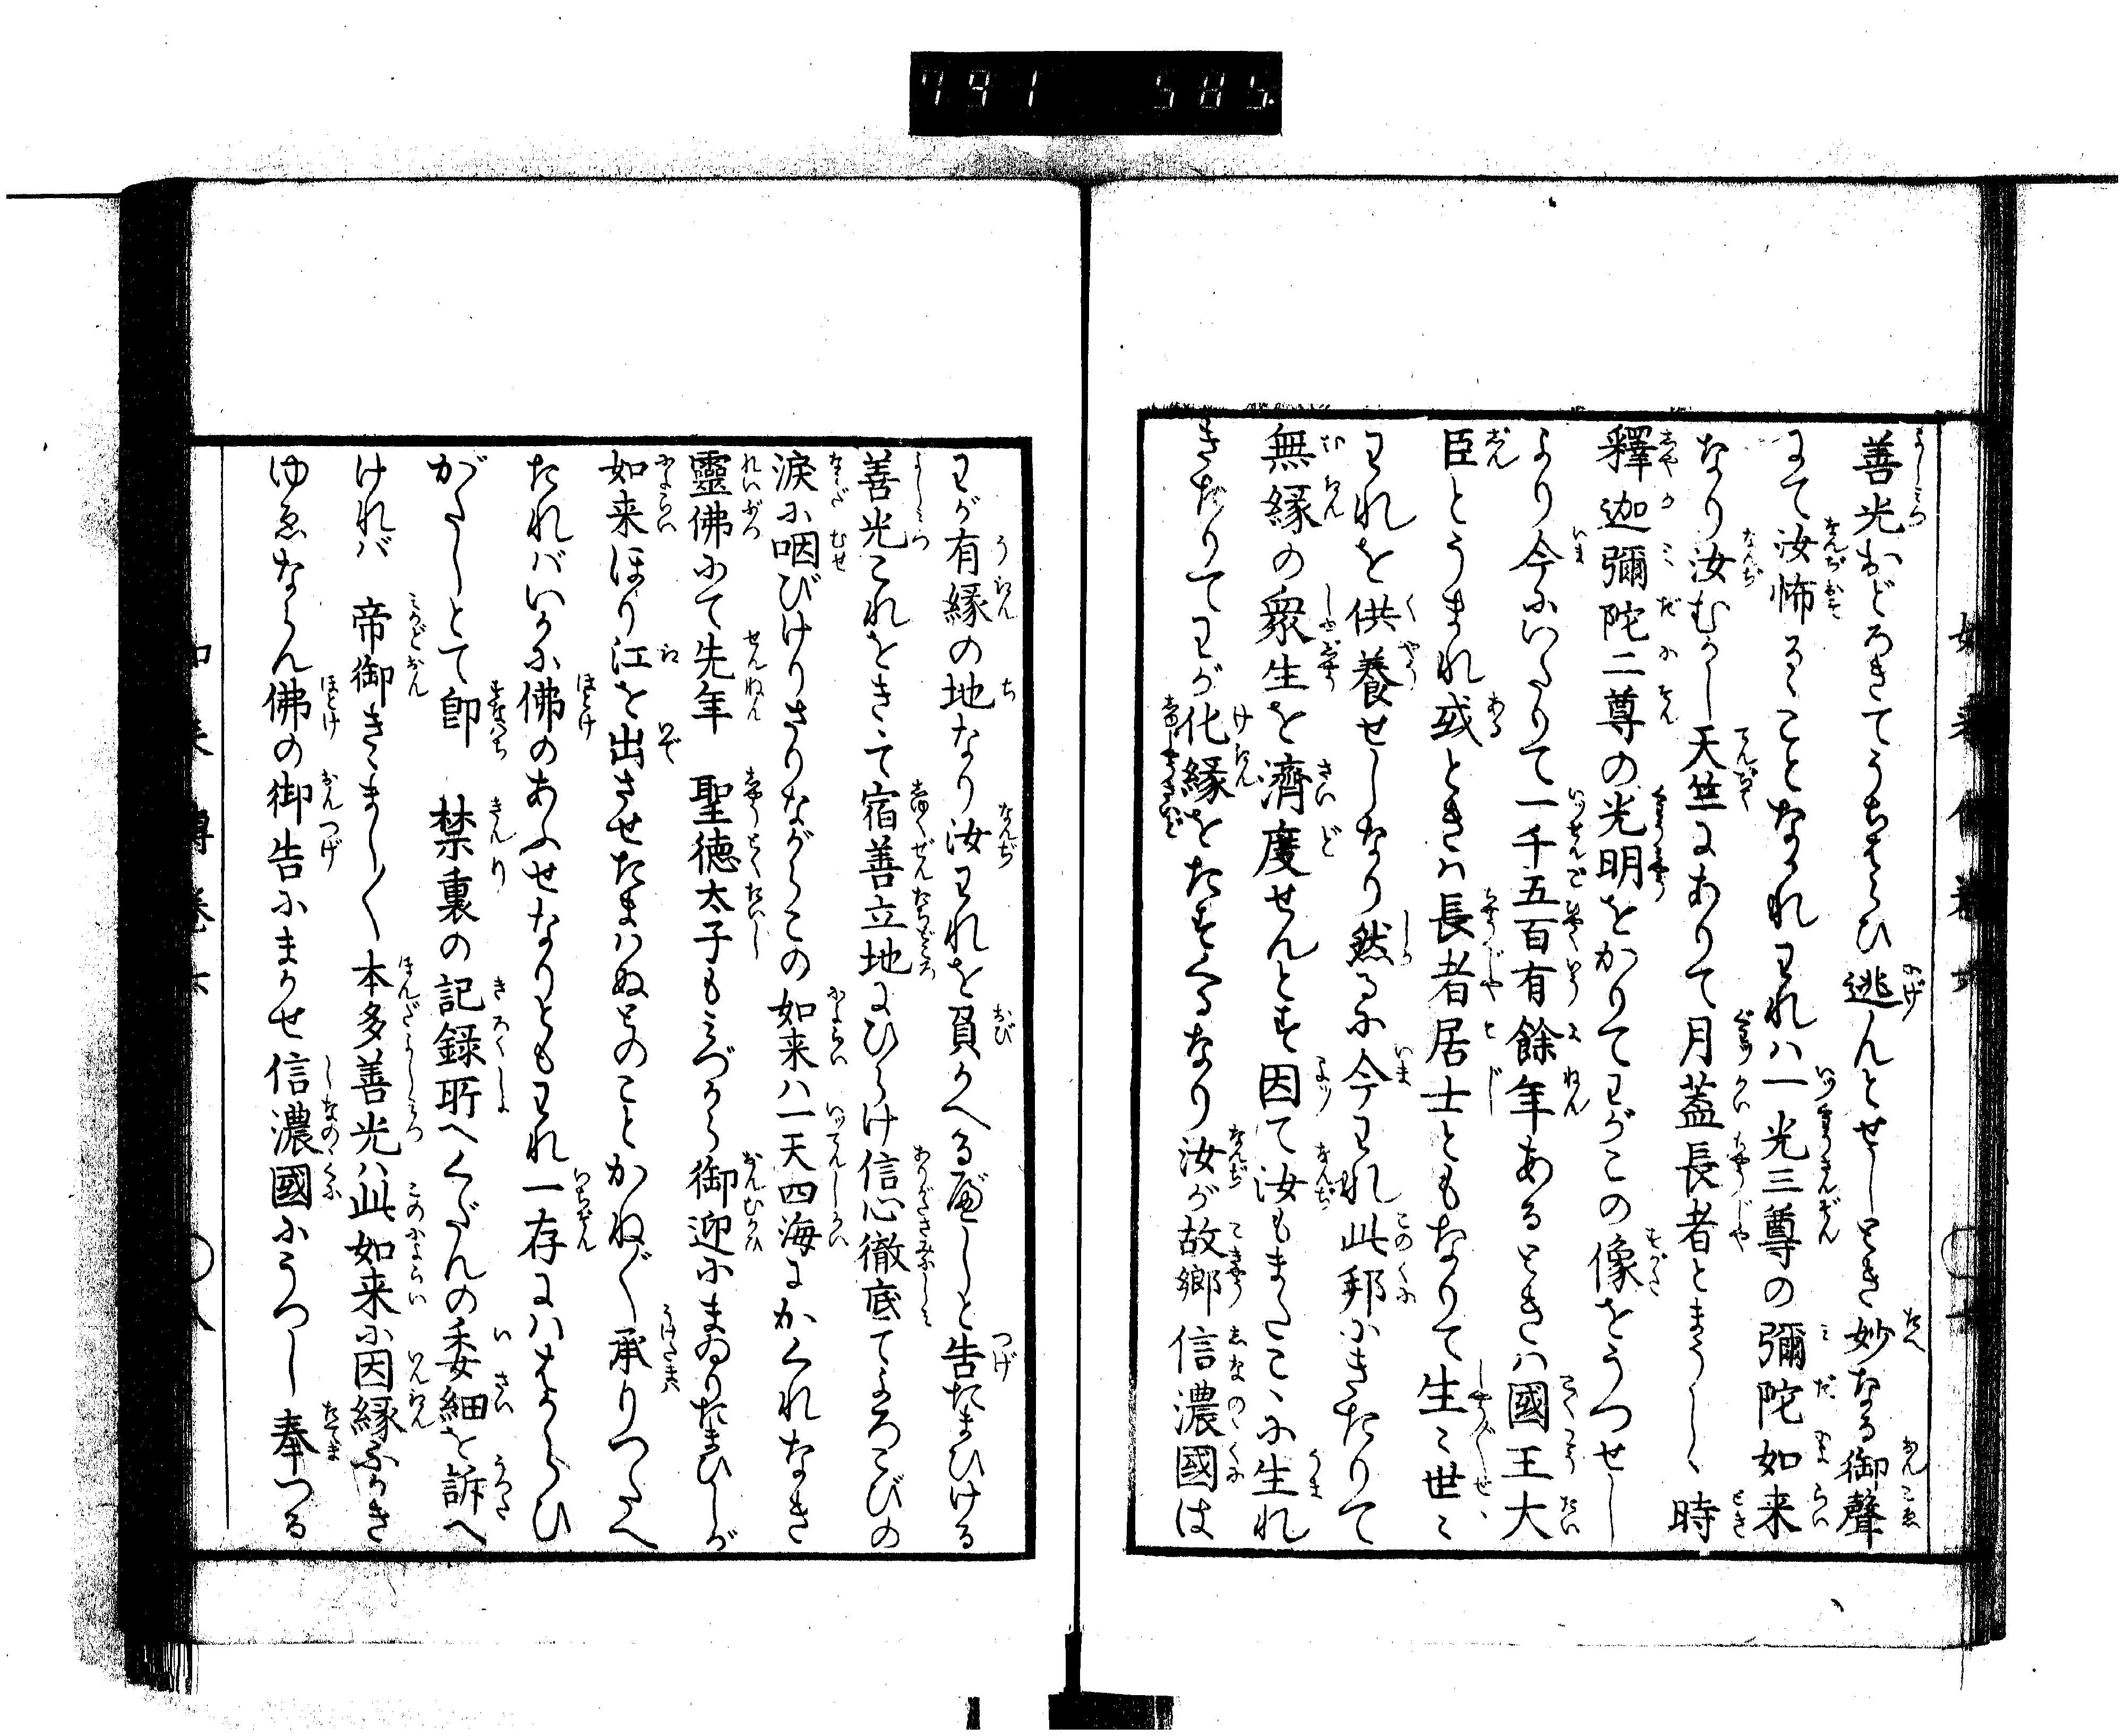 791 585
善光おどろきてうちはらひ逃んとせしとき妙なる御聲
にて汝怖るゝことなかれわれハ一光三尊の彌陀如来
なり汝むかし天竺にありて月蓋長者とまうしゝ時
釋迦彌陀二尊の光明をかりてわがこの像をうつせし
より今にいたりて一千五百有餘年あるときハ國王大
臣とうまれ或ときハ長者居士ともなりて生〻世〻
われを供養せしなり然るに今われ此邦にきたりて
無縁の衆生を濟度せんとす因て汝もまたこゝに生れ
きたりてわが化縁をたすくるなり汝が故郷信濃國は
わが有縁の地なり汝われを負かへるべしと告たまひける
善光これをきゝて宿善立地にひらけ信心徹底てよろこびの
涙に咽びけりさりながらこの如来ハ一天四海にかくれなき
靈佛にて先年 聖徳太子もみづから御迎にまゐりたまひしが
如来ほり江を出させたまハぬよのことかねがね承りつたへ
たれバいかに佛のあふせなりともわれ一存にハはからひ
がたしとて即 禁裏の記録所へくだんの委細を訴へ
けれバ 帝御きゝまし〳〵本多善光ハ此如来に因縁ふかき
ゆゑならん佛の御告にまかせ信濃國にうつし奉つる